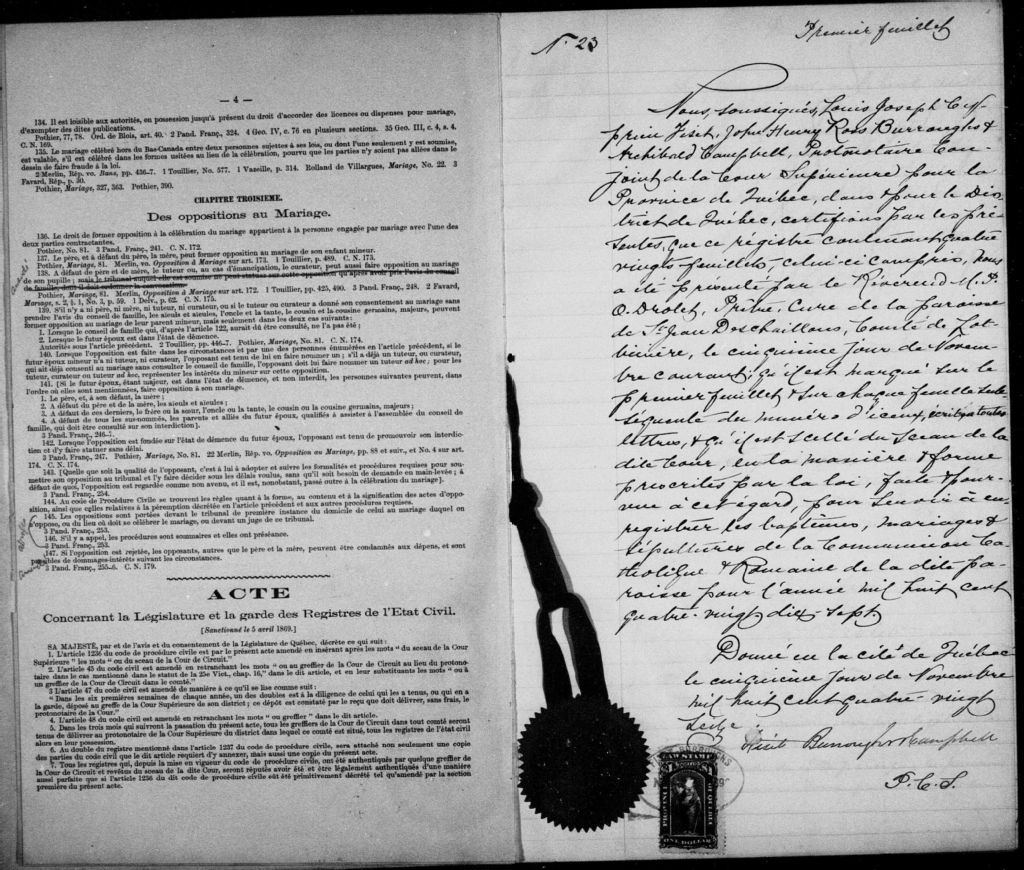 — 4 —
134. Il est loisible aux autorités, en possession jusqu'à présent du droit d'accorder des licences ou dispenses pour mariage,
d'exempter des dites publications.
Pothier, 77, 78. Ord. de Blois, art. 40. 2 Pand. Franç., 324. 4 Geo. IV, c. 76 en plusieurs sections. 35 Geo. III, c. 4, s. 4.
C. N. 169.
135. Le mariage célébré hors du Bas-Canada entre deux personnes sujettes à ses lois, ou dont l'une seulement y est soumise,
est valable, s'il est célébré dans les formes usitées au lieu de la célébration, pourvu que les parties n'y soient pas allées dans le
dessin de faire fraude à la loi.
2 Merlin, Rép. vo. Bans, pp. 456-7. 1 Touillier, No. 577. 1 Vazeille, p. 314. Rolland de Villargues, Mariage, No. 22. 3
Favard, Rép., p. 30.
Pothier, Mariage, 327, 363. Pothier, 390.
CHAPITRE TROISIEME.
Des oppositions au Mariage.
136. Le droit de former opposition à la célébration du mariage appartient à la personne engagée par mariage avec l'une des
deux parties contractantes.
Pothier, No. 81. 3 Pand. Franç., 241. C. N. 172.
137. Le père, et à défaut du père, la mère, peut former opposition au mariage de son enfant mineur.
Pothier, Mariage, 81. Merlin, vo. Opposition à Mariage sur art. 173. 1 Touillier, p. 489. C. N. 173.
138. A défaut de père et de mère, le tuteur ou, au cas d'émancipation, le curateur, peut aussi faire opposition au mariage
de son pupille ; mais le tribunal auquel elle est soumise ne peut statuer sur cette opposition qu'après avoir pris l'avis du conseil
de famille, dont il doit ordonner la convocation.
Pothier, Mariage, 81. Merlin, Opposition à Mariage sur art. 172. 1 Touillier, pp. 425, 490. 3 Pand. Franç., 248. 2 Favard,
Mariage, s. 2, § 1, No. 3, p. 59. 1 Delv., p. 62. C. N. 175.
139. S'il n'y a ni père, ni mère, ni tuteur, ni curateur, ou si le tuteur ou curateur a donné son consentement au mariage sans
prendre l'avis du conseil de famille, les aïeuls et aïeules, l'oncle et la tante, le cousin et la cousine germains, majeurs, peuvent
former opposition au mariage de leur parent mineur, mais seulement dans les deux cas suivants:
1. Lorsque le conseil de famille qui, d'après l'article 122, aurait dû être consulté, ne l'a pas été ;
2. Lorsque le futur époux est dans l'état de démence.
Autorités sous l'article précédent. 2 Touillier, pp. 446-7. Pothier, Mariage, No. 81. C. N. 174.
140. Lorsque l'opposition est faite dans les circonstances et par une des personnes énumérées en l'article précédent, si le
futur époux mineur n'a ni tuteur, ni curateur, l'opposant est tenu de lui en faire nommer un ; s'il a déjà un tuteur, ou curateur,
qui ait déjà consenti au mariage sans consulter le conseil de famille, l'opposant doit lui faire nommer un tuteur ad hoc ; pour les
tuteur, curateur ou tuteur ad hoc, représenter les intérêts du mineur sur cette opposition.
141. [Si le futur époux, étant majeur, est dans l'état de démence, et non interdit, les personnes suivantes peuvent, dans
l'ordre où elles sont mentionnées, faire opposition à son mariage.
1. Le père, et, à son défaut, la mère ;
2. A défaut du père et de la mère, les aïeuls et aïeules ;
3. A défaut de ces derniers, le frère ou la sœur, l'oncle ou la tante, le cousin ou la cousine germains, majeurs ;
4. A défaut de tous les sus-nommés, les parents et alliés du futur époux, qualifiés à assister à l'assemblée du conseil de
famille, qui doit être consulté sur son interdiction].
3 Pand. Franç., 246-7.
142. Lorsque l'opposition est fondée sur l'état de démence du futur époux, l'opposant est tenu de promouvoir son interdic-
tion et d'y faire statuer sans délai.
3 Pand. Franç., 247. Pothier, Mariage, No. 81. 22 Merlin, Rép. vo. Opposition au Mariage, pp. 88 et suiv., et No. 4 sur art.
174. C. N. 174.
143. [Quelle que soit la qualité de l'opposant, c'est à lui à adopter et suivre les formalités et procédures requises pour sou-
mettre son opposition au tribunal et l'y faire décider sous les délais voulus, sans qu'il soit besoin de demande en main-levée ; à
défaut de quoi, l'opposition est regardée comme non avenu, et il est, nonobstant, passé outre à la célébration du mariage].
3 Pand. Franç., 254.
144. Au code de Procédure Civile se trouvent les règles quant à la forme, au contenu et à la signification des actes d'oppo-
sition, ainsi que celles relatives à la péremption décrétée en l'article précédent et aux autres procédures requises.
145. Les oppositions sont portées devant le tribunal de première instance du domicile de celui au mariage duquel on
s'oppose, ou du lieu où doit se célébrer le mariage, ou devant un juge de ce tribunal.
3 Pand. Franç., 253.
146. S'il y a appel, les procédures sont sommaires et elles ont préséance.
3 Pand. Franç., 253.
147. Si l'opposition est rejetée, les opposants, autres que le père et la mère, peuvent être condamnés aux dépens, et sont
passibles de dommages-intérêts suivant les circonstances.
3 Pand. Franç., 255-6. C. N. 179.
ACTE
Concernant la Législature et la garde des Registres de l'Etat Civil.
[Sanctionné le 5 avril 1869.]
SA MAJESTÉ, par et de l'avis et du consentement de la Législature de Québec, décrète ce qui suit :
1. L'article 1236 du code de procédure civile est par le présent acte amendé en insérant après les mots " du sceau de la Cour
Supérieure " les mots " ou du sceau de la Cour de Circuit."
2. L'article 45 du code civil est amendé en retranchant les mots " ou au greffier de la Cour de Circuit au lieu du protono-
taire dans le cas mentionné dans le statut de la 25e Vict., chap. 16," dans le dit article, et en leur substituant les mots " ou à
un greffier de la Cour de Circuit dans le comté."
3 L'article 47 du code civil est amendé de manière à ce qu'il se lise comme suit :
" Dans les six premières semaines de chaque année, un des doubles est à la diligence de celui qui les a tenus, ou qui en a
la garde, déposé au greffe de la Cour Supérieure de son district ; ce dépôt est constaté par le reçu que doit délivrer, sans frais, le
protonotaire de la Cour."
4. L'article 48 du code civil est amendé en retranchant les mots " ou greffier " dans le dit article.
5. Dans les trois mois qui suivront la passation du présent acte, tous les greffiers de la Cour de Circuit dans tout comté seront
tenus de délivrer au protonotaire de la Cour Supérieure du district dans lequel ce comté est situé, tous les registres de l'état civil
alors en leur possession.
6. Au double du registre mentionné dans l'article 1237 du code de procédure civile, sera attaché non seulement une copie
des parties du code civil que le dit article requiert d'y annexer, mais aussi une copie du présent acte.
7. Tous les registres qui, depuis la mise en vigueur du code de procédure civile, ont été authentiqués par quelque greffier de
la Cour de Circuit et revêtus du sceau de la dite Cour, seront réputés avoir été et être légalement authentiqués d'une manière
aussi parfaite que si l'article 1236 du dit code de procédure civile eût été primitivement décrété tel qu'amendé par la section
première du présent acte.
N. 23
Premier feuillet
Nous, soussignés, Louis Joseph Cy-
prien Fiset, John Henry Ross Burroughs &
Archibald Campbell, Protonotaire Con-
joint de la Cour Supérieure pour la
Province de Québec, dans & pour le Dis-
trict de Québec, certifions par les pré-
sentes, que ce régistre contenant quatre
vingts feuillets, celui-ci compris, nous
a été présenté par le Révérend M. P.
O. Drolet, Prêtre, Curé de la paroisse
de St. Jean Deschaillons, Comté de Lot-
binière, le cinquième jour de Novem-
bre courant; qu'il est marqué sur le
premier feuillet & sur chaque feuillet sub-
séquent du numéro d'iceux, écrit en toutes
lettres, & qu'il est scellé du sceau de la
dite Cour, en la manière & forme
prescrites par la loi, faite & pour-
vue à cet égard, pour servir à en-
registrer les baptêmes, mariages &
sépultures de la Communion Ca-
tholique & Romaine de la dite pa-
roisse pour l'année mil huit cent
quatre-vingt dix-sept.
Donné en la cité de Québec
le cinquième jour de Novembre
mil huit cent quatre-vingt
seize
Fiset Burroughs & Campbell
P. C. S.
LAW STAMP
PROVINCE OF QUEBEC
ONE DOLLAR